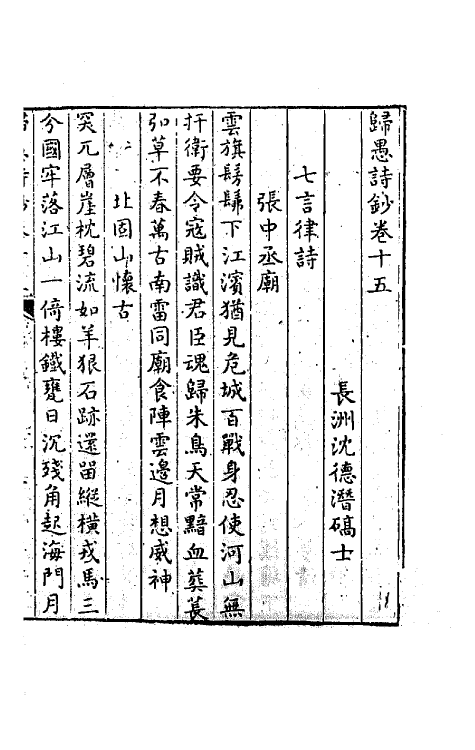 歸愚詩鈔卷十五
長洲沈德潛碻士
七言律詩
張中丞廟
雲旗髣髴下江濱猶見危城百戰身忍使河山無
扞衛要令寇賊識君臣魂歸朱鳥天常黯血葬萇
弘草不春萬古南雷同廟食陣雲邊月想威神
北固山懷古
突兀層崖枕碧流如羊狠石跡還留縱橫戎馬三
分國牢落江山一倚樓鐵甕日沉殘角起海門月